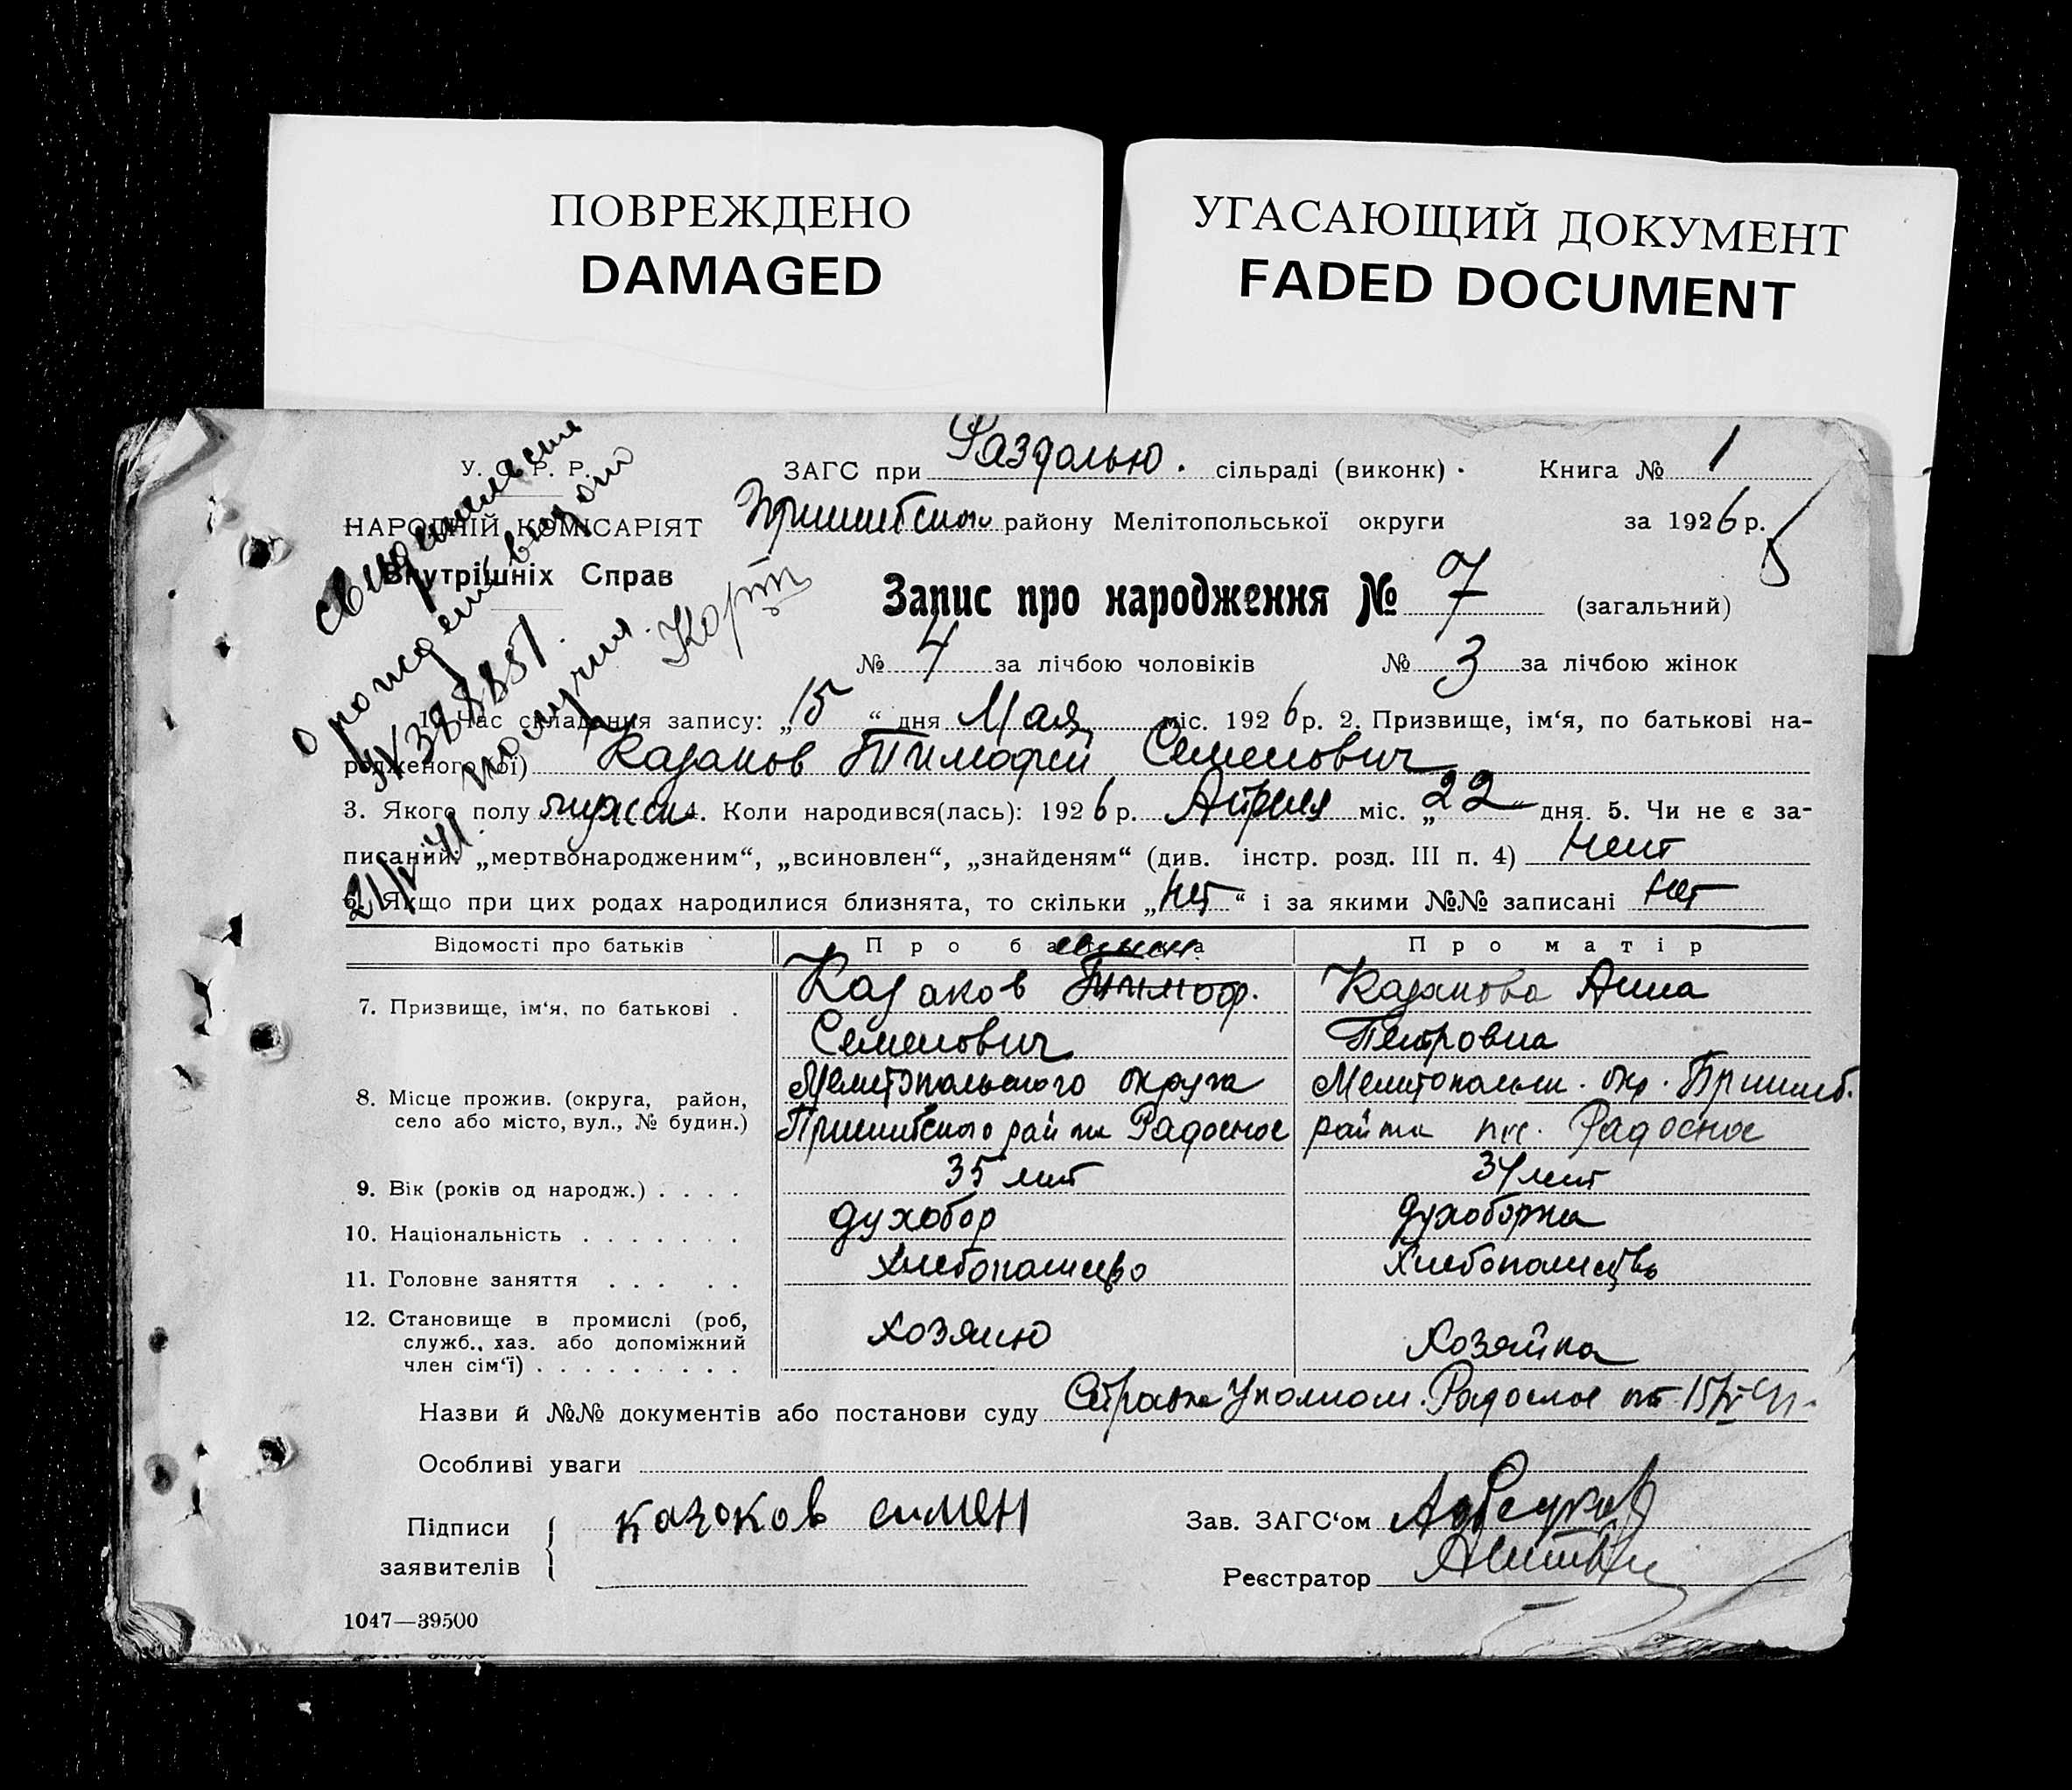 ПОВРЕЖДЕНО
DAMAGED
УГАСАЮЩИЙ ДОКУМЕНТ
FADED DOCUMENT
У. С. Р. Р.
НАРОДНІЙ КОМІСАРІЯТ
Внутрішніх Справ
ЗАГС при Раздолью. сільраді (виконк)
Книга № 1
Пришибского району Мелітопольської округи
за 1926 р.
Запис про народження № 7 (загальний)
№ 4 за лічбою чоловіків № 3 за лічбою жінок
1. Час складання запису: „15“ дня Мая міс. 1926 р. 2. Призвище, ім‘я, по батькові на-
родженого (ої) Казаков Тимофей Семенович
3. Якого полу мужск 4. Коли народився(лась): 1926 р. Апреля міс. „22“ дня. 5. Чи не є за-
писаний: „мертвонародженим“, „всиновлен“, „знайденям“ (див. інстр. розд. III п. 4) Нет
6. Якщо при цих родах народилися близнята, то скільки „Нет“ і за якими №№ записані Нет
свидетельство
о рожден
получил
Відомості про батьків
Про батька
Про матір
7. Призвище, ім‘я, по батькові .
Казаков Тимоф.
Семенович
Казакова Анна
Петровна
8. Місце прожив. (округа, район,
село або місто, вул., № будин.)
Мелитопольского округа
Пришибского рай на Радосное
Мелитопольск. окр. Пришиб.
райна пос. Радосное
9. Вік (років од народж.) . . . .
35 лет
34 лет
10. Національність . . . . . . .
духобор
духоборка
11. Головне заняття . . . . .
хлебопашество
хлебопашество
12. Становище в промислі (роб,
служб., хаз. або допоміжний
член сім‘ї) . . . . . . . . .
хозяин
хозяйка
Назви й №№ документів або постанови суду Справка Уполном. Радосное от 15/V
Особливі уваги
Підписи
заявителів
казоков симен
Зав. ЗАГС‘ом
Реєстратор
1047—39500